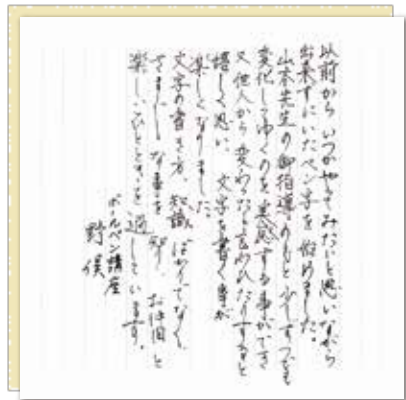 以前からいつかやってみたいと思いながら
出来ずにいたペン字を始めました。
山本先生の御指導のもと少しずつでも
変化してゆくのを実感する事ができ
又他人から変わったなと言われたりすると
嬉しく思い、文字を書く事が
楽しくなりました。
文字の書き方、知識ばかりでなく
さまざまな事を お仲間と
楽しいひとときを過しています。
ボールペン講座
野俣